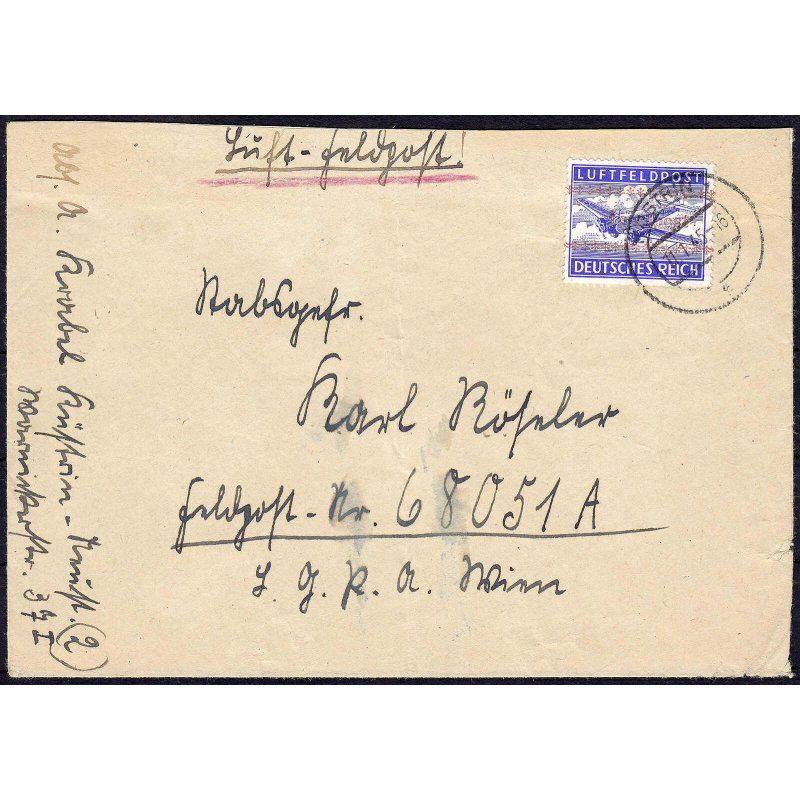 Luft-Feldpost!
LUFTFELDPOST
DEUTSCHES REICH
Stabsgefr.
Karl Röseler
Feldpost-Nr. 68051 A
L. G. P. A. Wien
Abs. A. Krabel Küstrin-Neust. (2)
37 I